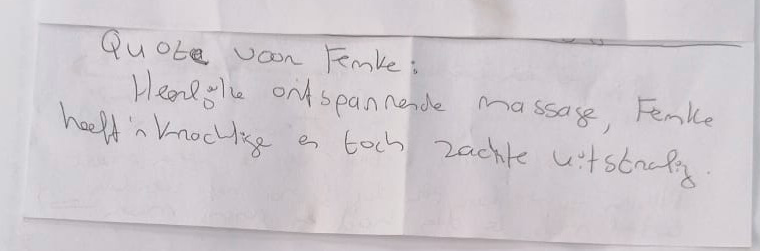 Quote voor Femke:
Heerlijke ontspannende massage, Femke
heeft 'n krachtige en toch zachte uitstraling.